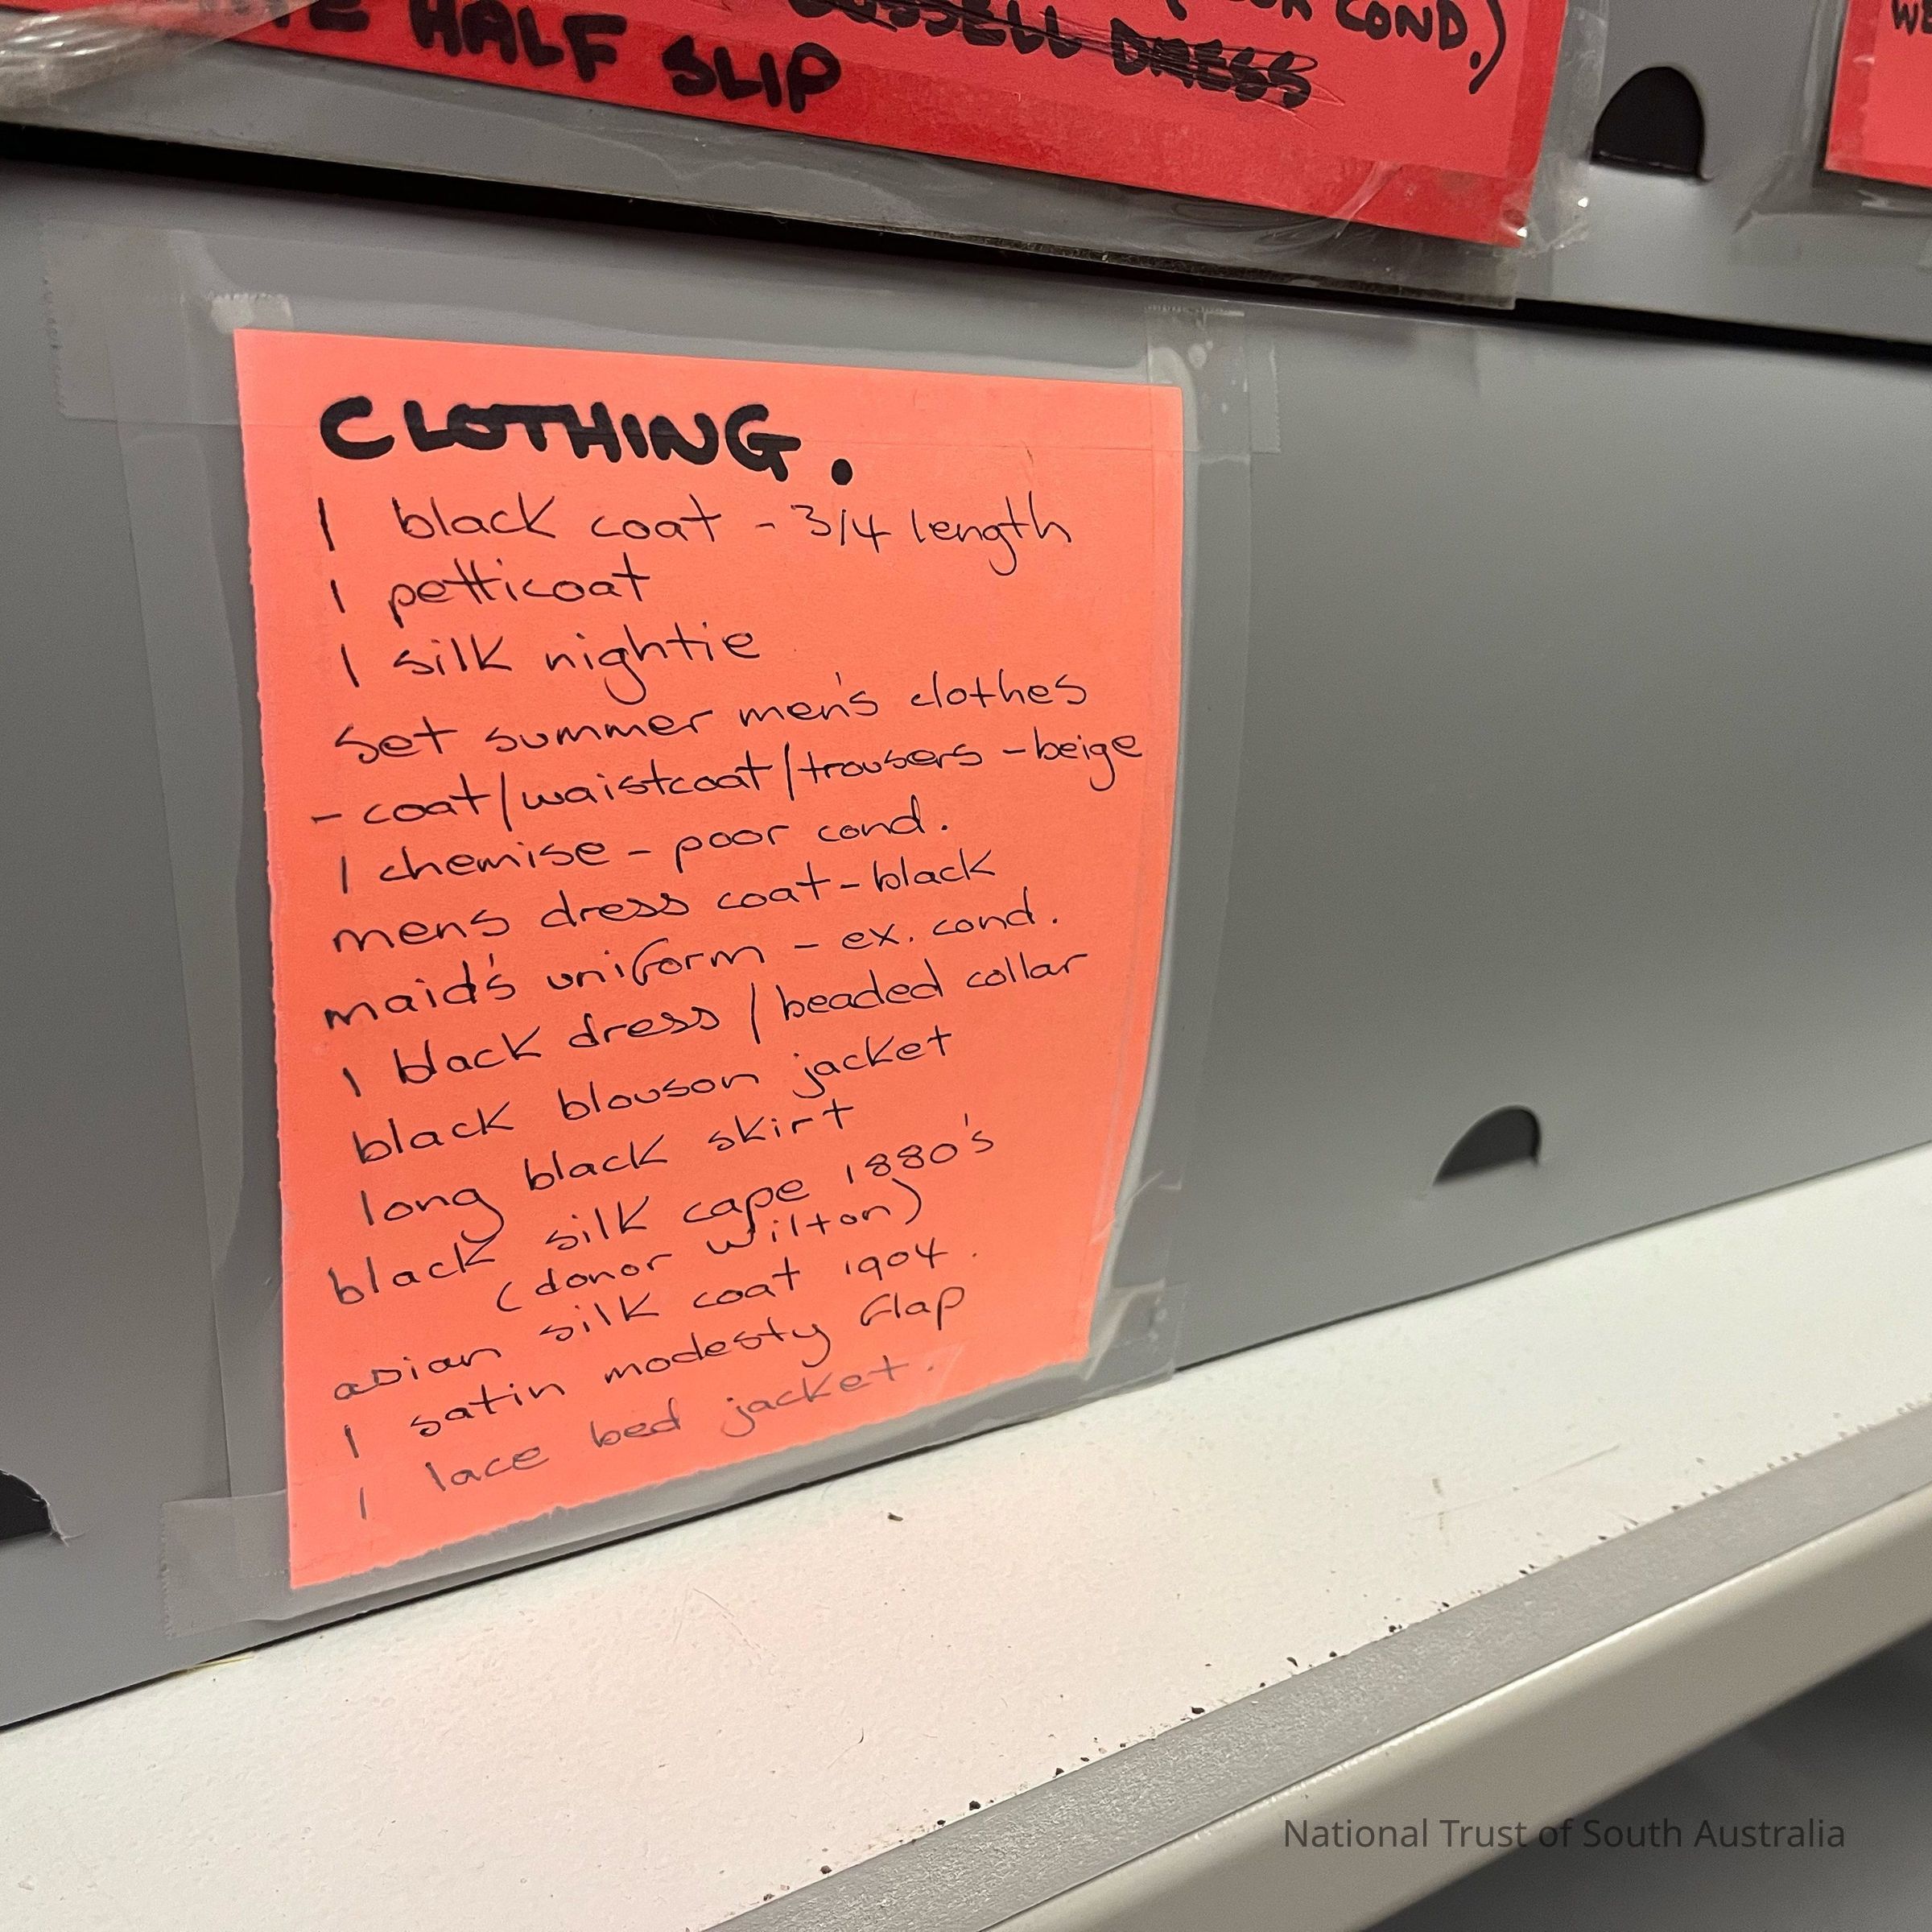 HALF SLIP
DRESS
COND.)
CLOTHING.
1 black coat - 3/4 length
1 petticoat
1 silk nightie
set summer men's clothes
- coat/waistcoat/trousers - beige
1 chemise - poor cond.
mens dress coat - black
maid's uniform - ex. cond.
1 black dress / beaded collar
black blouson jacket
long black skirt
black silk cape 1880's
(donor Wilton)
asian silk coat 1904.
1 satin modesty flap
1 lace bed jacket.
National Trust of South Australia